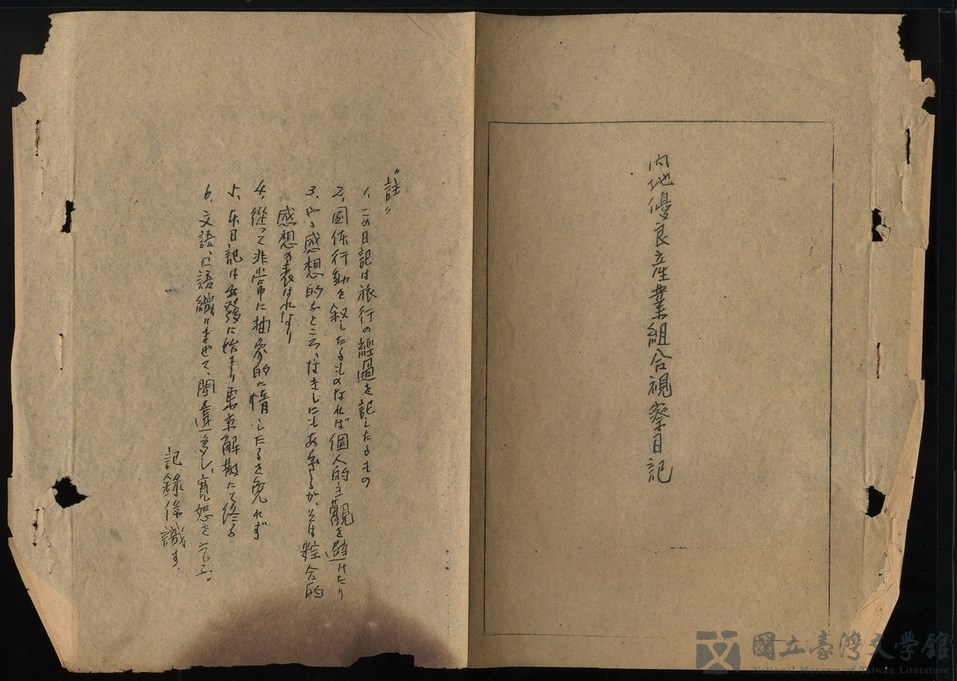 内地優良産業組合視察日記
"註"
1、この日記は旅行の經過を記したるもの
2、團体行動を叙したるものなれば個人的主觀を避けたり
3、やゝ感想的なところ、なきにしもあらずが、そは綜合的
感想の表はれなり
4、從って非常に抽象的に惰したるを免れず
5、本日記は出發に始まり東京解散にて終る
6、文語、口語織りまぜて、間違多し、寛恕を乞ふ。
記錄係識す
國立臺灣文學館
National Museum of Taiwan Literature